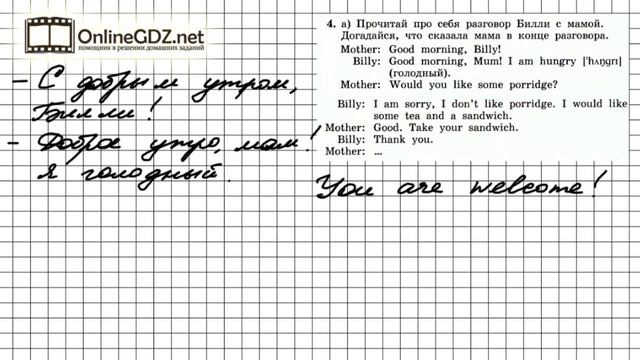 OnlineGDZ.net
помощник в решении домашних заданий
4. а) Прочитай про себя разговор Билли с мамой.
Догадайся, что сказала мама в конце разговора.
Mother: Good morning, Billy!
Billy: Good morning, Mum! I am hungry ['hʌŋgrɪ]
(голодный).
Mother: Would you like some porridge?
Billy: I am sorry, I don't like porridge. I would like
some tea and a sandwich.
Mother: Good. Take your sandwich.
Billy: Thank you.
Mother: ...
– С добрым утром,
Билли!
– Доброе утро, мам!
Я голодный.
You are welcome!